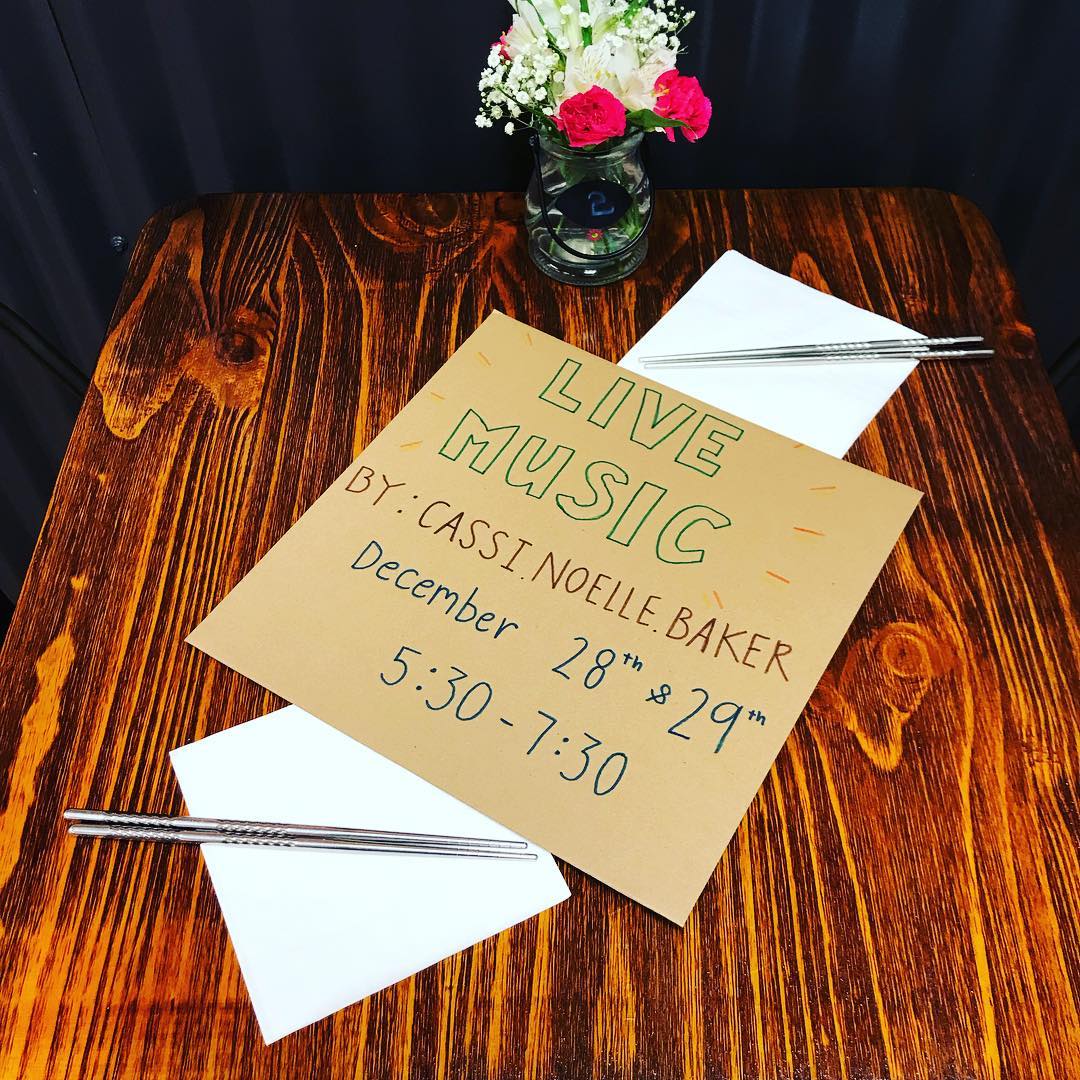 2
LIVE
MUSIC
BY: CASSI.NOELLE.BAKER
December 28th & 29th
5:30-7:30